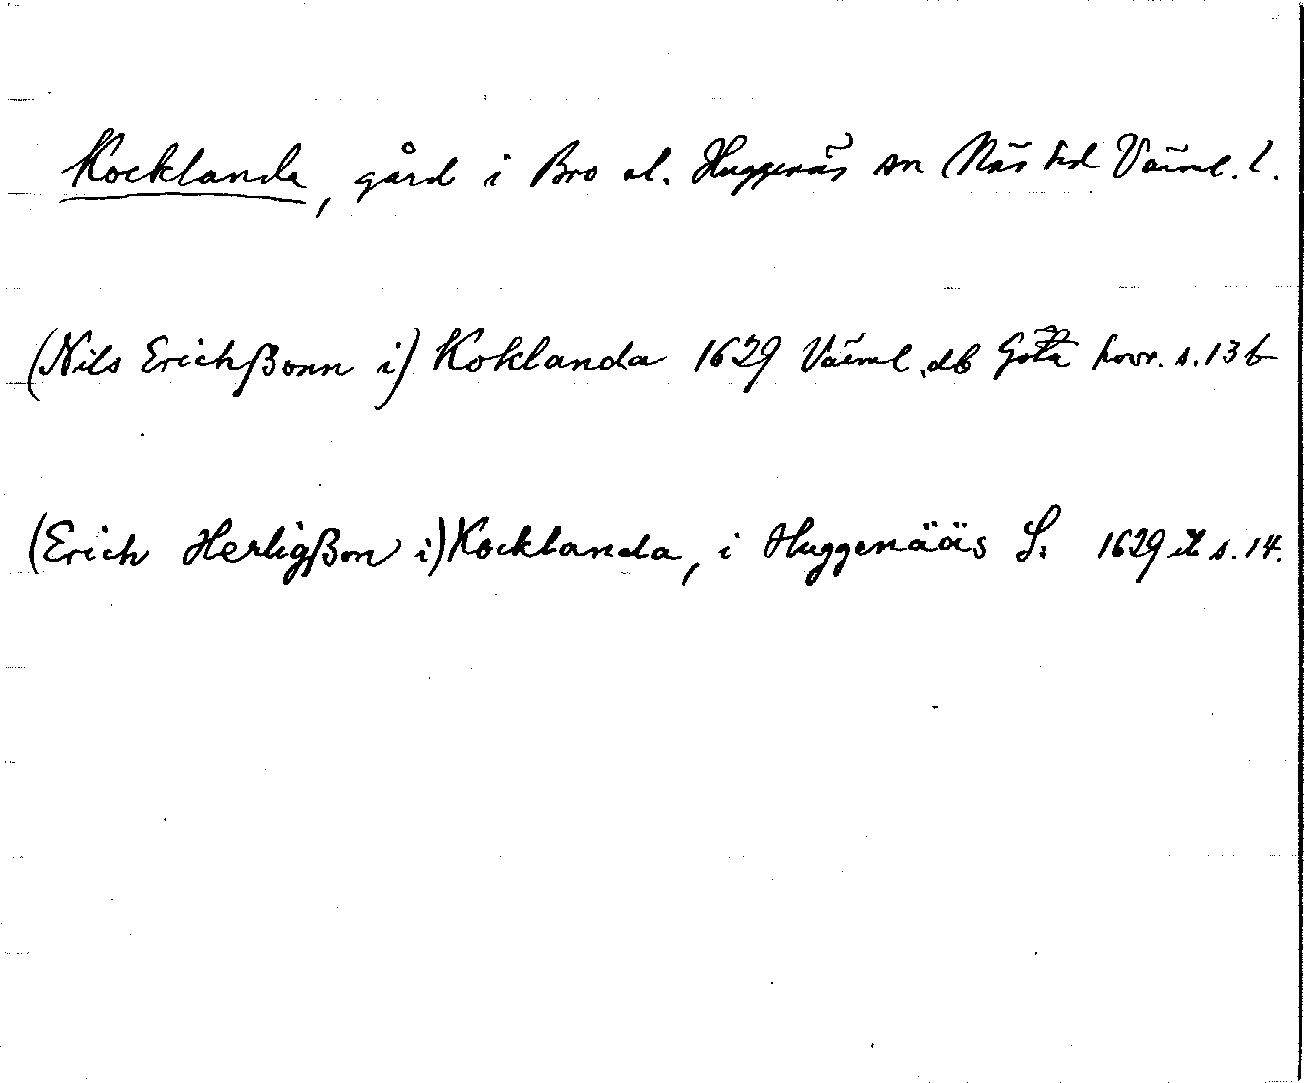 Kocklanda, gård i Bro el. Huggenäs sn Näs hd Värml. l.
(Nils Erichßonn i) Koklanda 1629 Värml. db Göta hovr. s. 136
(Erich Herligßon i) Kocklanda, i Huggenääs S: 1629 s. 14.